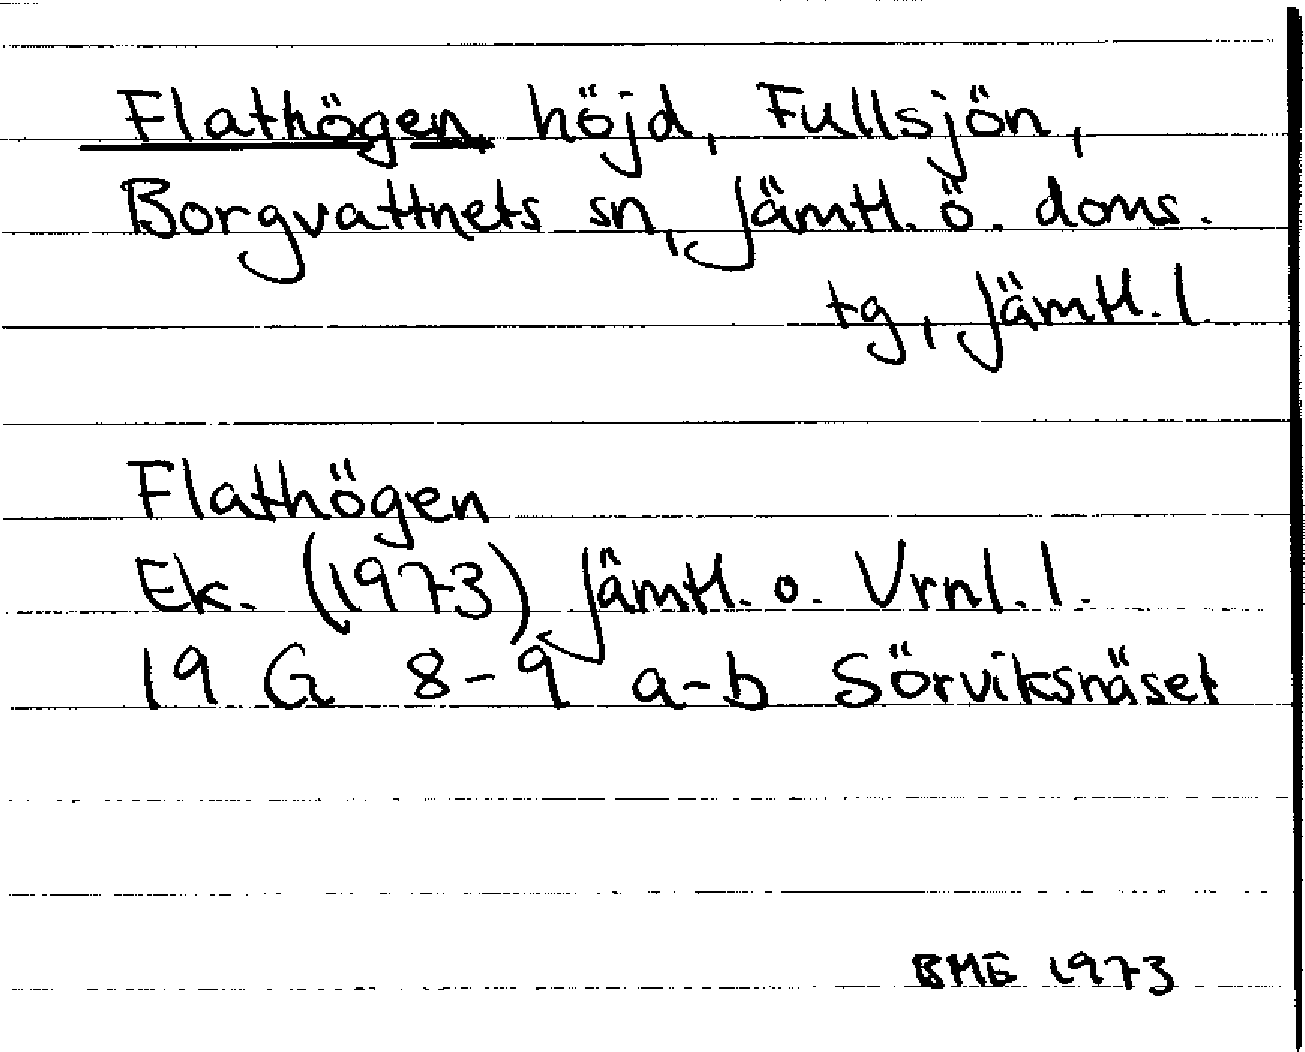 Flathögen, höjd, Fullsjön,
Borgvattnets sn, Jämtl. ö. doms.
tg, Jämtl. l
Flathögen
Ek. (1973) Jämtl. o. Vrnl. l.
19 G 8-9 a-b Sörviksnäset
BME 1973